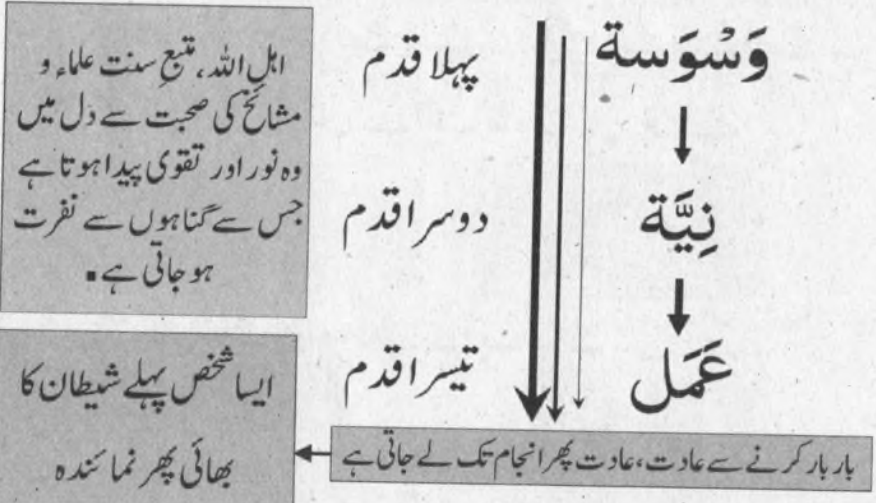 وَسْوَسة
پہلا قدم
نِيَّة
دوسرا قدم
عَمَل
تیسرا قدم
بار بار کرنے سے عادت، عادت پھر انجام تک لے جاتی ہے
اہل اللہ، متبع سنت علماء و
مشائخ کی صحبت سے دل میں
وہ نور اور تقوی پیدا ہوتا ہے
جس سے گناہوں سے نفرت
ہو جاتی ہے ▪
ایسا شخص پہلے شیطان کا
بھائی پھر نمائندہ